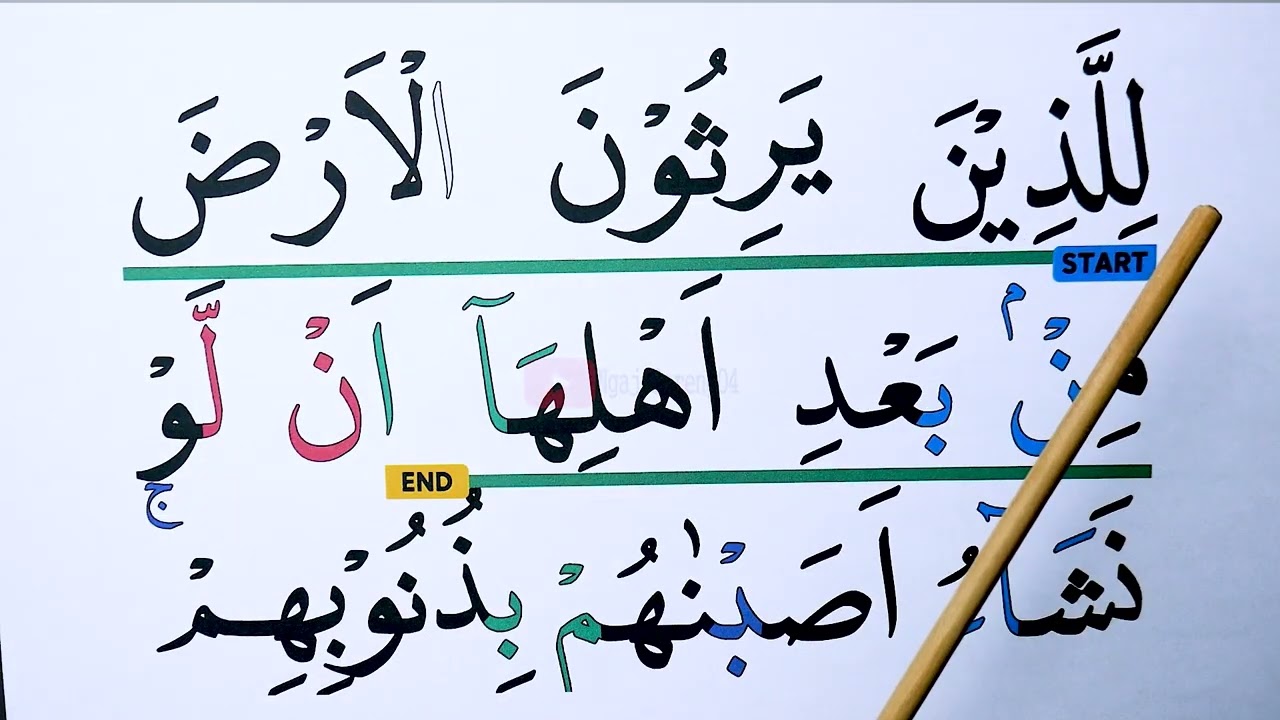 لِلَّذِيْنَ يَرِثُوْنَ الْاَرْضَ
START
مِنْۢ بَعْدِ اَهْلِهَآ اَنْ لَّوْ
END
نَشَآءُ اَصَبْنٰهُمْ بِذُنُوْبِهِمْ ۚ